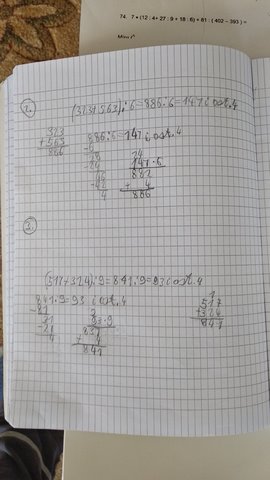 74. 7 • (12 : 4 + 27 : 9 + 18 : 6) + 81 : ( 402 – 393 ) =
2.
(323+563):6=886:6=147 i ost.4
323
+563
886
886:6=147 i ost.4
-6
28
-24
46
-42
4
24
147·6
882
+ 4
886
3.
(517+324):9=841:9=93 i ost.4
841:9=93 i ost.4
-81
31
-27
4
2
93·9
837
+ 4
841
1
517
+324
841